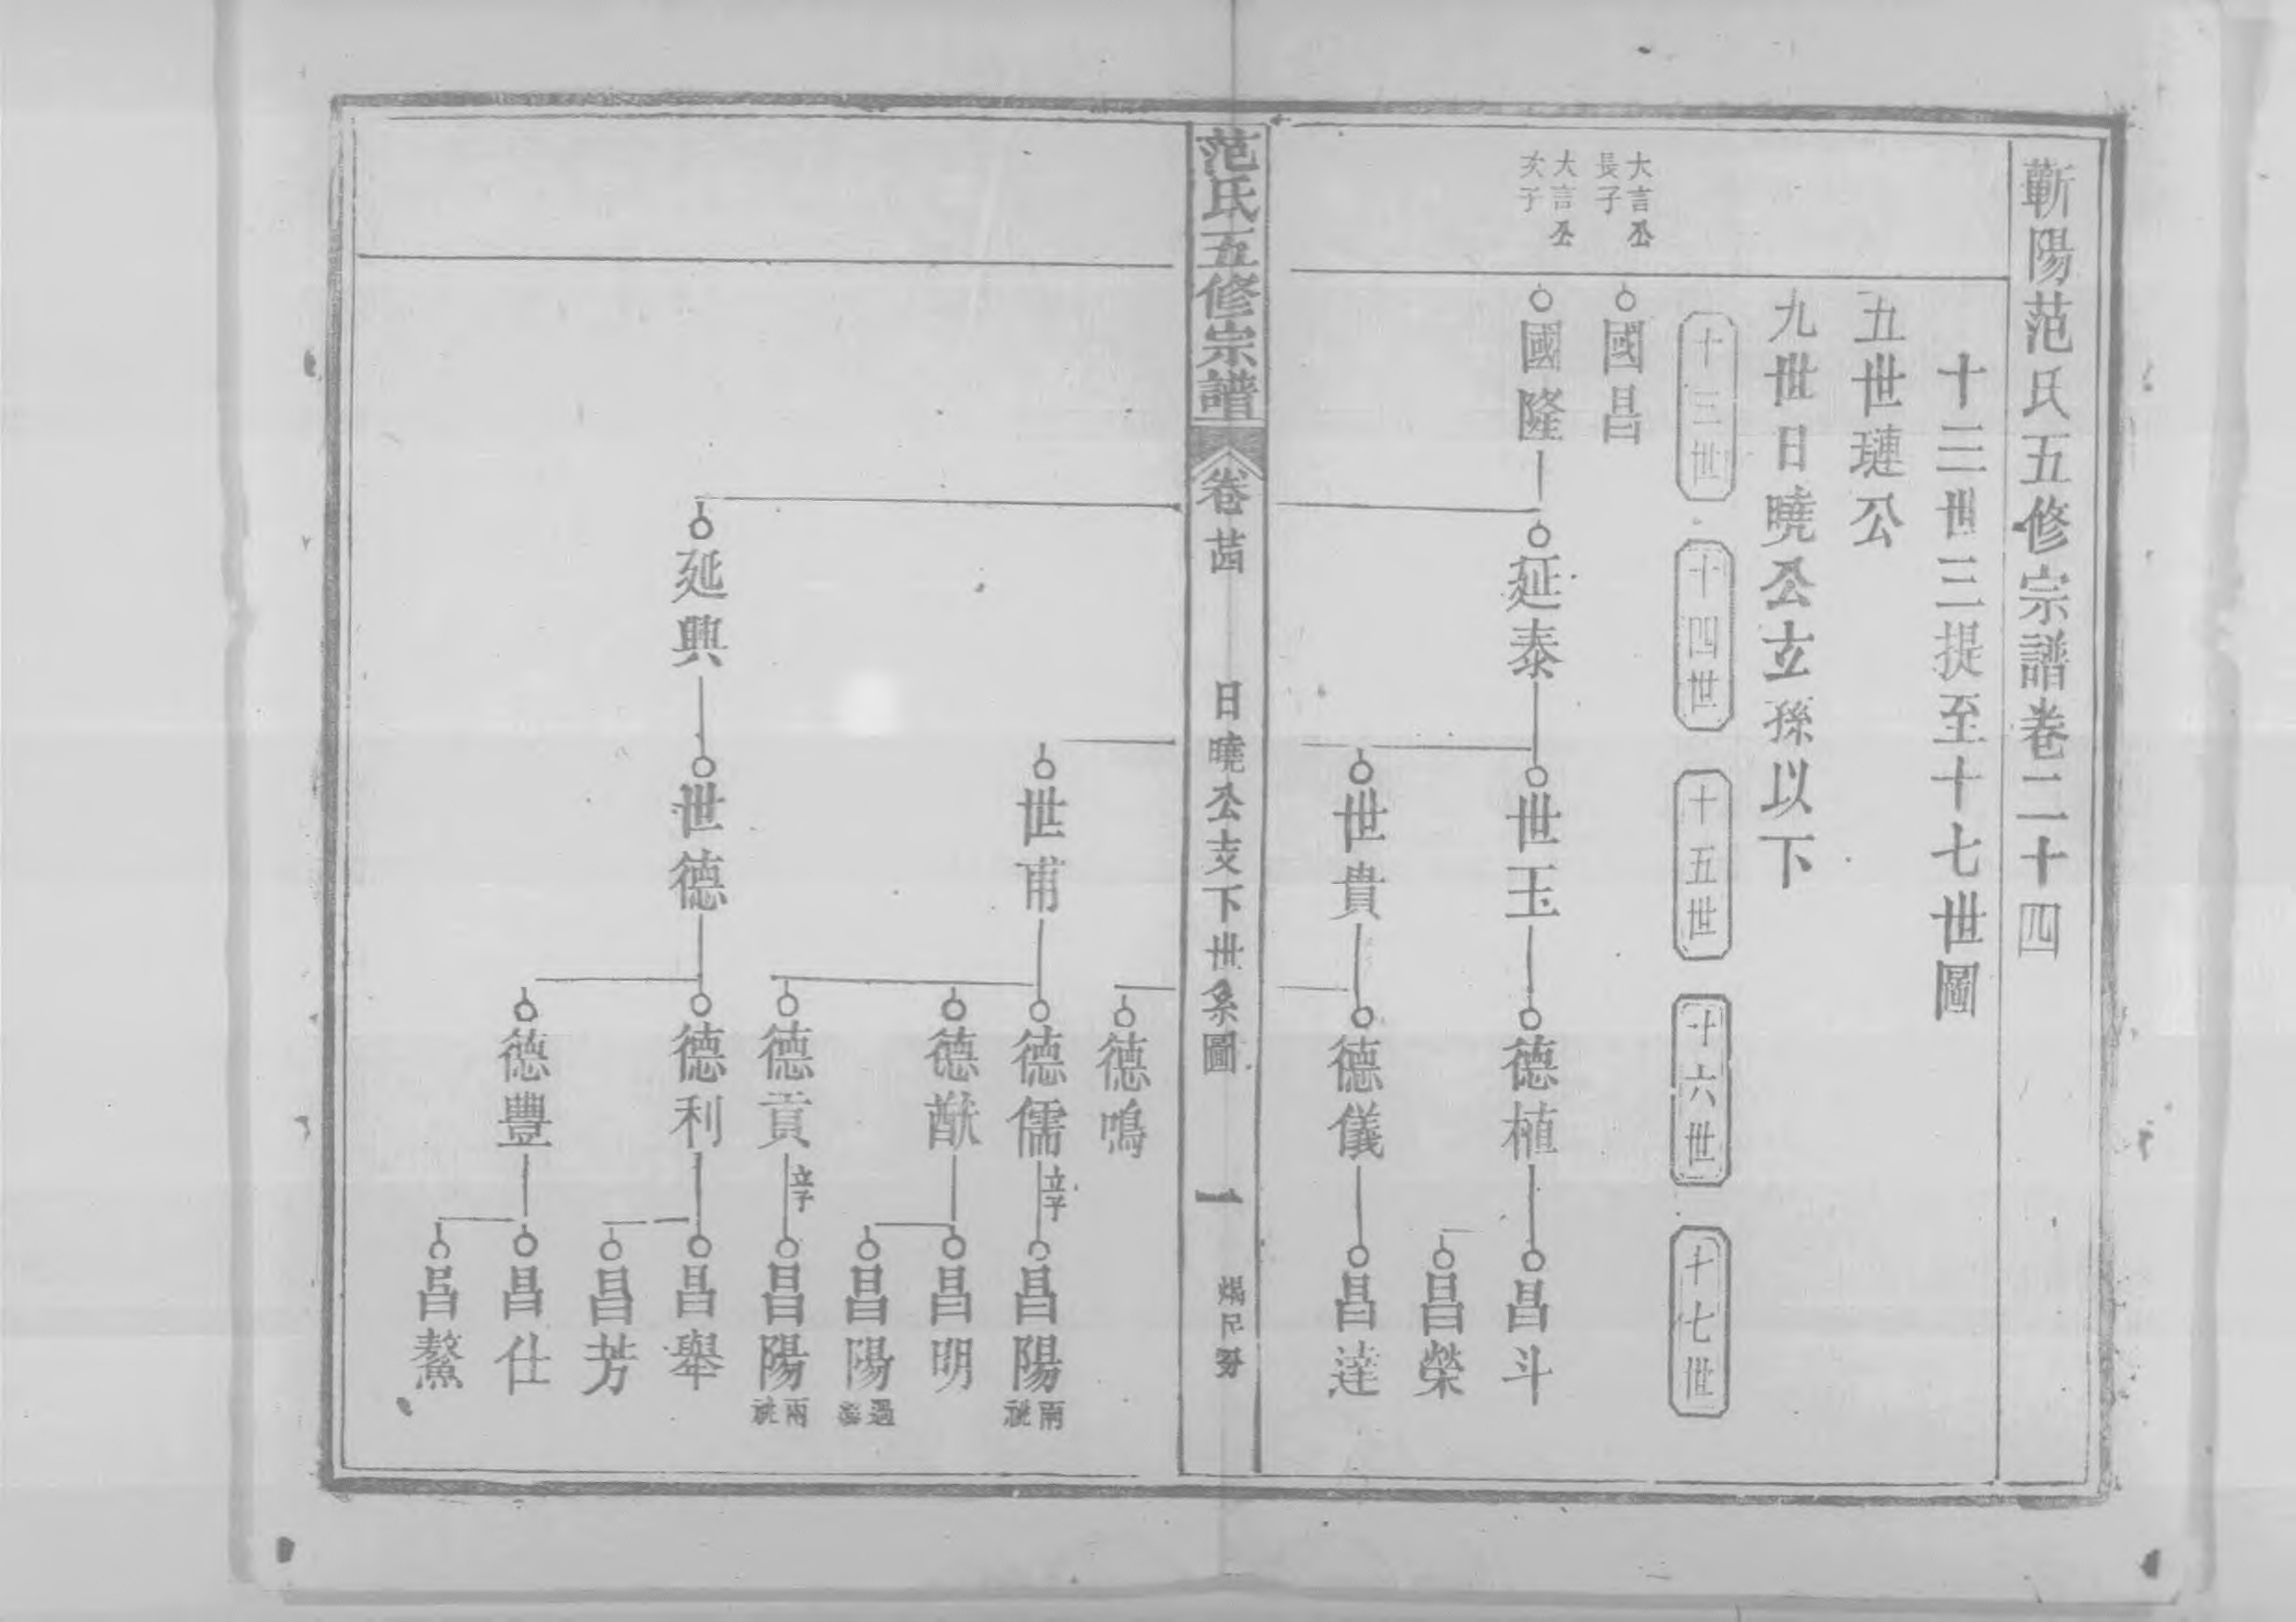 蘄陽范氏五修宗譜卷二十四
十三世三提至十七世圖
五世璉公
九世日曉公玄孫以下
十三世
十四世
十五世
十六世
十七世
大言公
長子
國昌
大言公
次子
國隆
延泰
世玉
德植
昌斗
昌榮
世貴
德儀
昌達
范氏五修宗譜
卷茜
日曉公支下世系圖
一
德鳴
世甫
德儒
立子
昌陽
兩
祧
德猷
昌明
昌陽
過
德貢
立子
昌陽
兩
祧
延興
世德
德利
昌舉
昌芳
德豐
昌仕
昌鰲